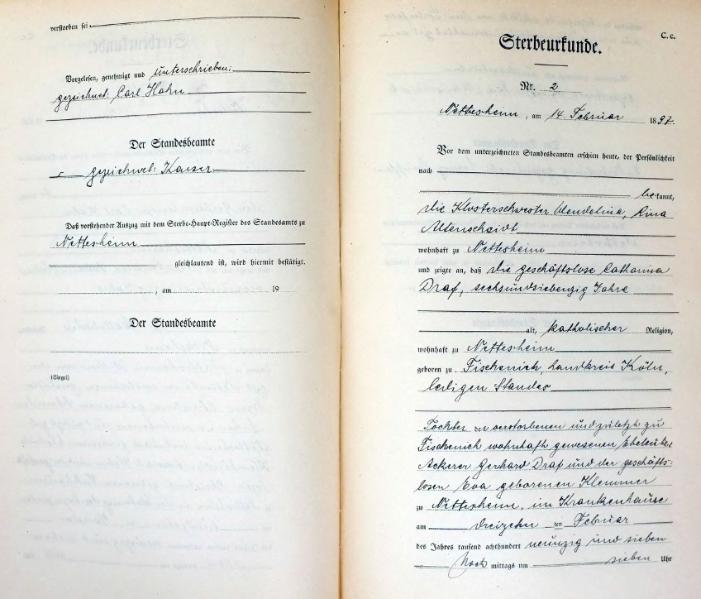 verstorben sei
Vorgelesen, genehmigt und unterschrieben:
gezeichnet: Carl Hahn
Der Standesbeamte
gezeichnet: Kaiser
Daß vorstehender Auszug mit dem Sterbe-Haupt-Register des Standesamts zu
Nettesheim
gleichlautend ist, wird hiermit bestätigt.
, am 19
Der Standesbeamte
(Siegel)
C. c.
Sterbeurkunde.
Nr. 2
Nettesheim, am 14. Februar 1897.
Vor dem unterzeichneten Standesbeamten erschien heute, der Persönlichkeit
nach
bekannt,
die Klosterschwester Wendelina, Lina
Altenscheidt
wohnhaft zu Nettesheim
und zeigte an, daß die geschäftslose Catharina
Draf, sechsundsiebenzig Jahre
alt, katholischer Religion,
wohnhaft zu Nettesheim
geboren zu Fischenich, Landkreis Köln,
ledigen Standes
Tochter der verstorbenen und zuletzt zu
Fischenich wohnhaft gewesenen Eheleute
Ackerer Gerhard Draf und der geschäfts-
losen Eva geborenen Klemmer
zu Nettesheim, im Krankenhause
am dreizehn ten Februar
des Jahres tausend achthundert neunzig und sieben
Nachmittags um sieben Uhr